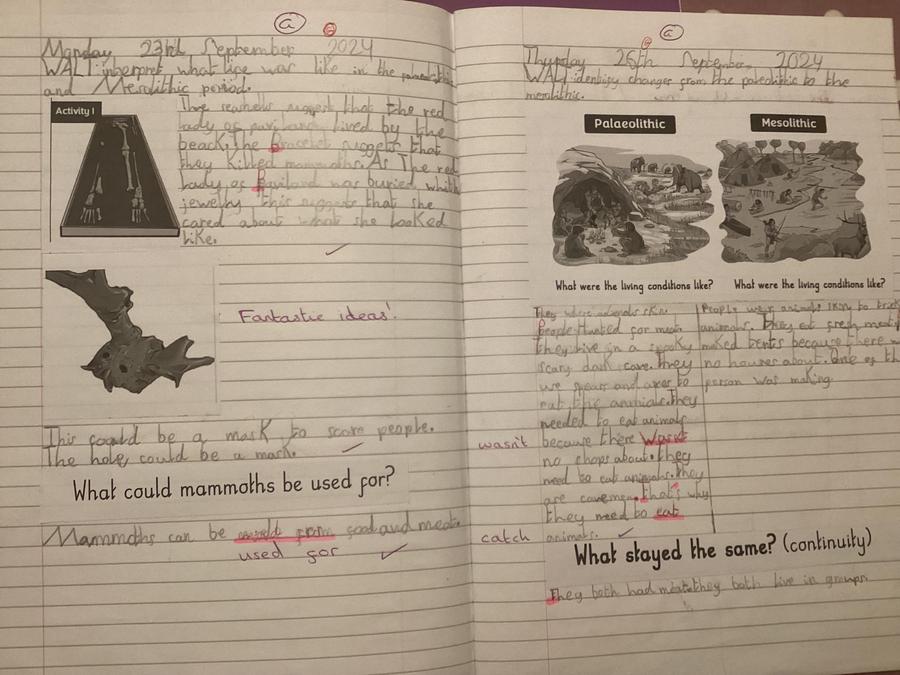 a
Monday 23rd September 2024
WALT interpret what life was like in the palaeolithic
and Mesolithic period.
Activity 1
The remains suggest that the red
lady of paviland lived by the
beach. The Bracelet suggests that
they killed mammoths. As The red
Lady of Paviland was buried with
jewelry this suggests that she
cared about what she looked
like.
Fantastic ideas!
This could be a mask to scare people.
The hole could be a mask.
What could mammoths be used for?
Mammoths can be from food and meat.
used for
a
Thursday 26th September 2024
WALT identify changes from the paleolithic to the
mesolithic.
Palaeolithic
Mesolithic
What were the living conditions like?
What were the living conditions like?
They where animals skin.
People Hunted for meat
they live in a spooky
scary dark cave. They
we spears and axes to
eat the animals. They
needed to eat animals
because there wasnt
wasn't
no shops about. they
need to eat animals. they
are cavemen. that's why
they need to eat
catch
animals.
People wear animals skin to trick
animals. They eat fresh meat
maked tents because there
no houses about. One of th
person was making.
What stayed the same? (continuity)
They both had meat. they both live in groups.